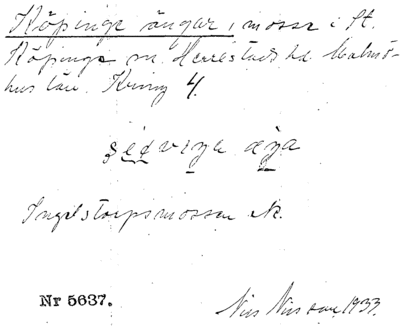 Köpinge ängar, mosse i St.
Köpinge sn. Herrestads hd. Malmö-
hus län. Kring 4.
Ingelstorpsmossen
Nr 5637.
Nils Nilsson, 1933.